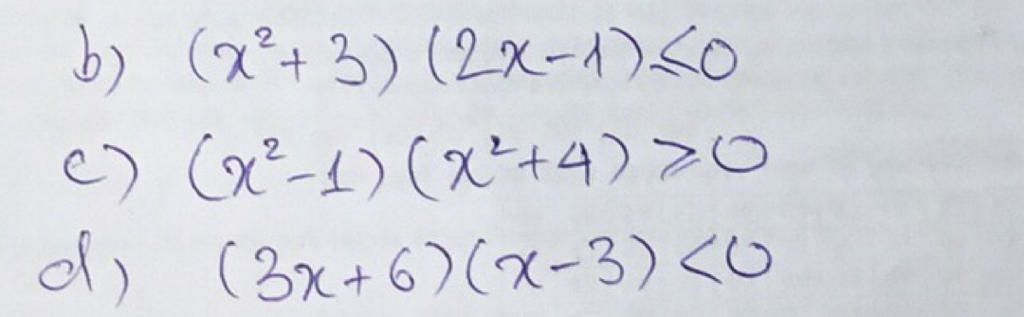 b) (x²+3)(2x-1)≤0
c) (x²-1)(x²+4)≥0
d) (3x+6)(x-3)<0